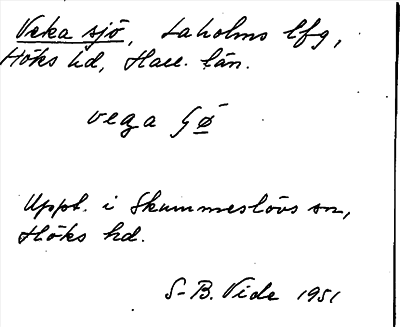 Veka sjö, Laholms lfg,
Höks hd, Hall. län.
vega ʃø
Uppt. i Skummeslövs sn,
Höks hd.
S-B. Vide 1951